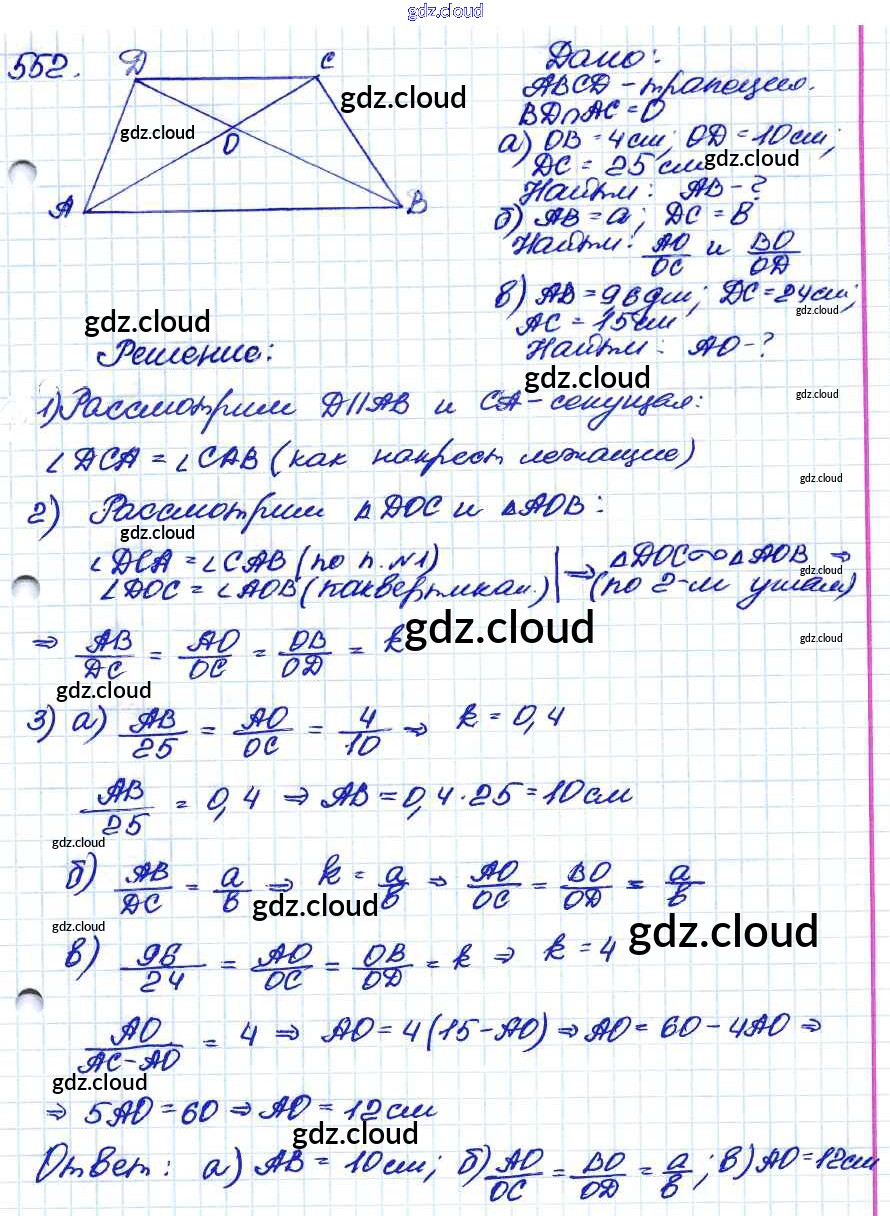 gdz.cloud
552.
D
C
gdz.cloud
gdz.cloud
O
A
B
Дано:
ABCD - трапеция.
BD∩AC = O
а) OB = 4см; OD = 10см;
DC = 25 см
gdz.cloud
Найти: AB - ?
б) AB = a; DC = B
Найти: AO/OC и BO/OD
в) AB = 96дм; DC = 24см;
gdz.cloud
AC = 15см
Найти: AO - ?
gdz.cloud
Решение:
gdz.cloud
gdz.cloud
1) Рассмотрим D||AB и CA - секущая:
∠DCA = ∠CAB (как накрест лежащие)
gdz.cloud
2) Рассмотрим △DOC и △AOB:
gdz.cloud
∠DCA = ∠CAB (по п. N1)
∠DOC = ∠AOB (как вертикал.) | ⇒ △DOC ∾ △AOB ⇒
gdz.cloud
(по 2-м углам)
⇒ AB/DC = AO/OC = OB/OD = k
gdz.cloud
gdz.cloud
gdz.cloud
3) а) AB/25 = AO/OC = 4/10 ⇒ k = 0,4
AB/25 = 0,4 ⇒ AB = 0,4·25 = 10см
gdz.cloud
б) AB/DC = a/B ⇒ k = a/B ⇒ AO/OC = BO/OD = a/B
gdz.cloud
gdz.cloud
gdz.cloud
в) 96/24 = AO/OC = OB/OD = k ⇒ k = 4
AO/AC-AO = 4 ⇒ AO = 4(15-AO) ⇒ AO = 60 - 4AO ⇒
gdz.cloud
⇒ 5AO = 60 ⇒ AO = 12см
gdz.cloud
Ответ: а) AB = 10см; б) AO/OC = BO/OD = a/B; в) AO = 12см